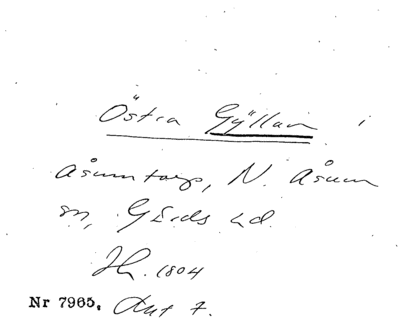 Östra Gyllan i
Åsumtorp, N. Åsum
sn, Gärds hd.
1804
Nr 7965. Akt 7.